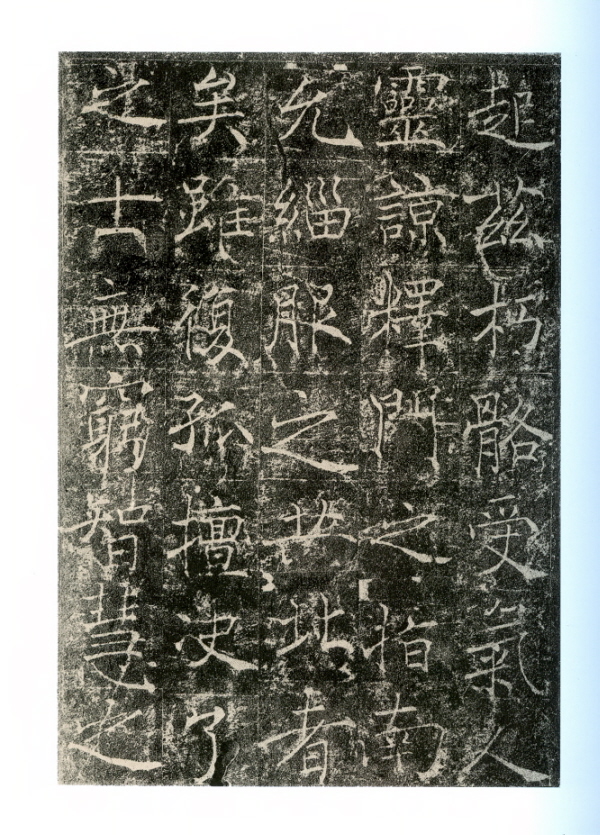 起茲朽骼受氣人
靈諒釋門之指南
允緇服之共北者
矣雖復孤擅决了
之士無窮智慧之